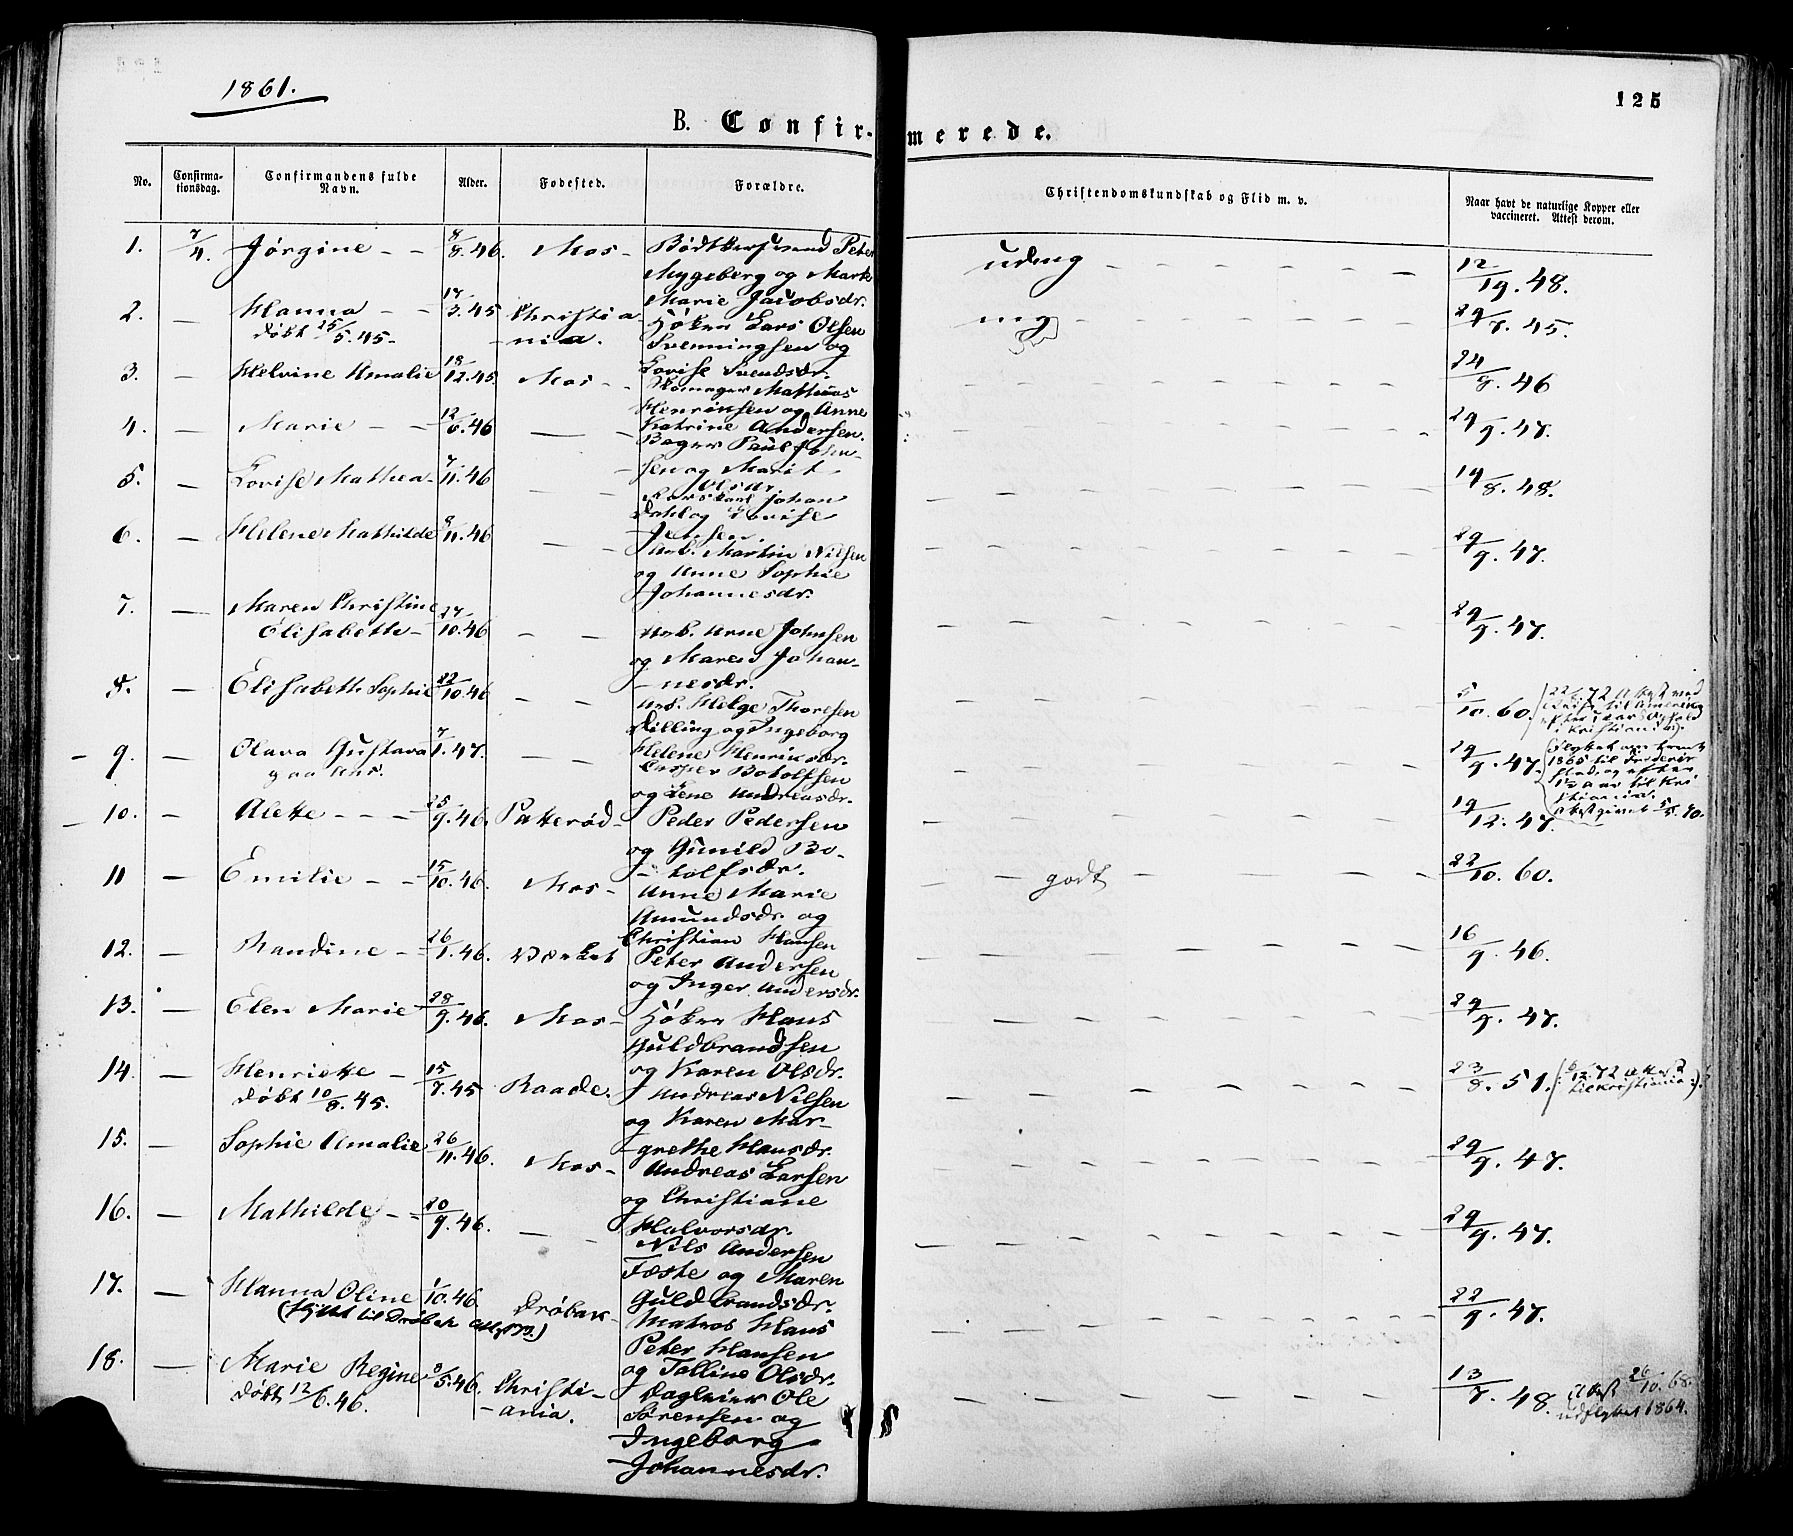 1861.
125
B. Confirmerede.
No. Confirmationsdag. Confirmandens fulde Navn. Alder. Fødested. Forældre. Christendomskundskab og Flid m. v. Naar havt de naturlige Kopper eller vaccineret. Attest derom.
1. 7/4. Jørgine - - 8/8.46. Mos - Bødtkersvend Peter
Mygeberg og Marte
Marie Jacobsdr. udmg 12/19.48.
2. — Hanna - - 17/3.45 Christia
døbt 25/5.45. - nia. Høker Lars Olsen
Svenningsen og
Lovise Svendsdr. mg 29/7.45.
3. — Helvine Amalie 18/12.45 Mos - Skomager Mathias
Henriksen og Anne
Katrine Andersen. 24/9.46
4. — Marie - - 12/6.46 — Bager Paul John-
sen og Marit
Olsdr. 29/9.47.
5. — Lovise Mathea 7/11.46 - - Karl Johan
Dahl og Lovise
Jensen. 19/8.48.
6. — Helene Mathilde 9/11.46 - - Arb. Martin Nilsen
og Anne Sophie
Johannesdr. 29/9.47.
7. — Maren Christine
Elisabeth - 27/10.46 - - Arb. Arne Johnsen
og Maren Johan-
- nesdr. 29/9.47.
8. — Elisabeth Sophie 22/10.46 - - Arb. Helge Thoresen
Dilling og Ingeborg
Helene Henriksdr. 5/10.60.
9. — Olava Gustava 7/1.47. - - Casper Botolfsen
og Lene Andreasdr. 29/9.47.
10. — Alette - - - 25/9.46. Patterød - Peder Pedersen
og Gunild Bo-
- tolfsdr. 19/12.47.
11 — Emilie - - 15/10.46. Mos - Anne Marie
Amundsdr. og
Christian Hansen godt 22/10.60.
12. — Randine - 26/1.46. Værket Peter Andersen
og Inger Andersdr. 16/9.46.
13. — Elen Marie 28/9.46. Mos - Høker Hans
Guldbrandsen
og Karen Olsdr. 29/9.47.
14. — Henriette - 15/7.45 Raade.
døbt 10/8.45. Andreas Nilsen
og Karen Mar-
- grethe Hansdr. 23/8.51.
15. — Sophie Amalie 26/11.46. Mos - Andreas Larsen
og Christiane
Halvorsdr. 29/9.47.
16. — Mathilde - 20/9.46. - - Nils Andersen
Tæste og Maren
Guldbrandsdr. 29/9.47.
17. — Hanna Oline 1/10.46. Drøbak -
(flyttet til Drøbak Matros Hans
Peter Hansen
og Talline Olsdr. 22/9.47.
18. — Marie Regine 8/5.46. Christi-
døbt 12/6.46. - ania. Dagleier Ole
Sørensen og
Ingeborg
Johannesdr. 13/7.48. Attest 26/10.68.
udflyttet 1864.